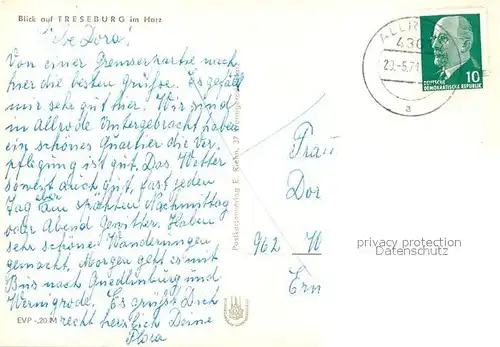 Blick auf TRESEBURG im Harz
Liebe Dora!
Von einer Bremserpartie nach
hier die besten Grüße. Es gefällt
mir sehr gut hier. Wir sind
in Allrode Untergebracht, haben
ein schönes Quartier die Ver.
pflegung ist gut. Das Wetter
soweit auch gut, fast jeden
Tag am späten Nachmittag
oder Abend Gewitter. Haben
sehr schöne Wanderungen
gemacht. Morgen geht es mit
Bus nach Quedlinburg und
Wernigrode. Es grüßt Dich
recht herzlich Deine
Flora
EVP -,20 M
Postkartenverlag E. Riehn, 37 Wernigerode
ALLR
4307
20.-5.71
a
10
DEUTSCHE
DEMOKRATISCHE REPUBLIK
Frau
Dor
962 W
Ern
privacy protection
Datenschutz